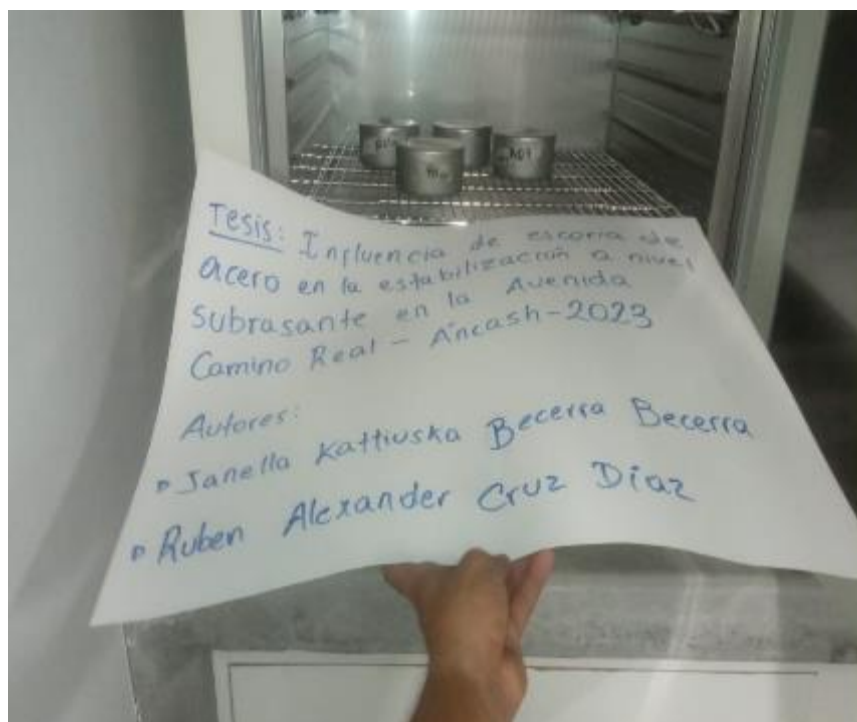 Tesis: Influencia de escoria de
acero en la estabilización a nivel
subrasante en la Avenida
Camino Real - Ancash-2023
Autores:
Janella Kattiuska Becerra Becerra
Ruben Alexander Cruz Diaz